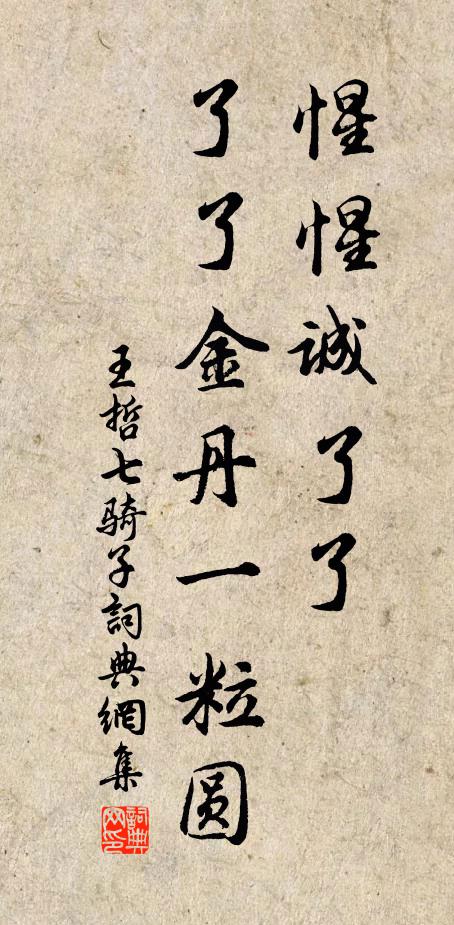 惺惺誠了了
了了金丹一粒圆
王哲七骑子詞典網集
詞典网印